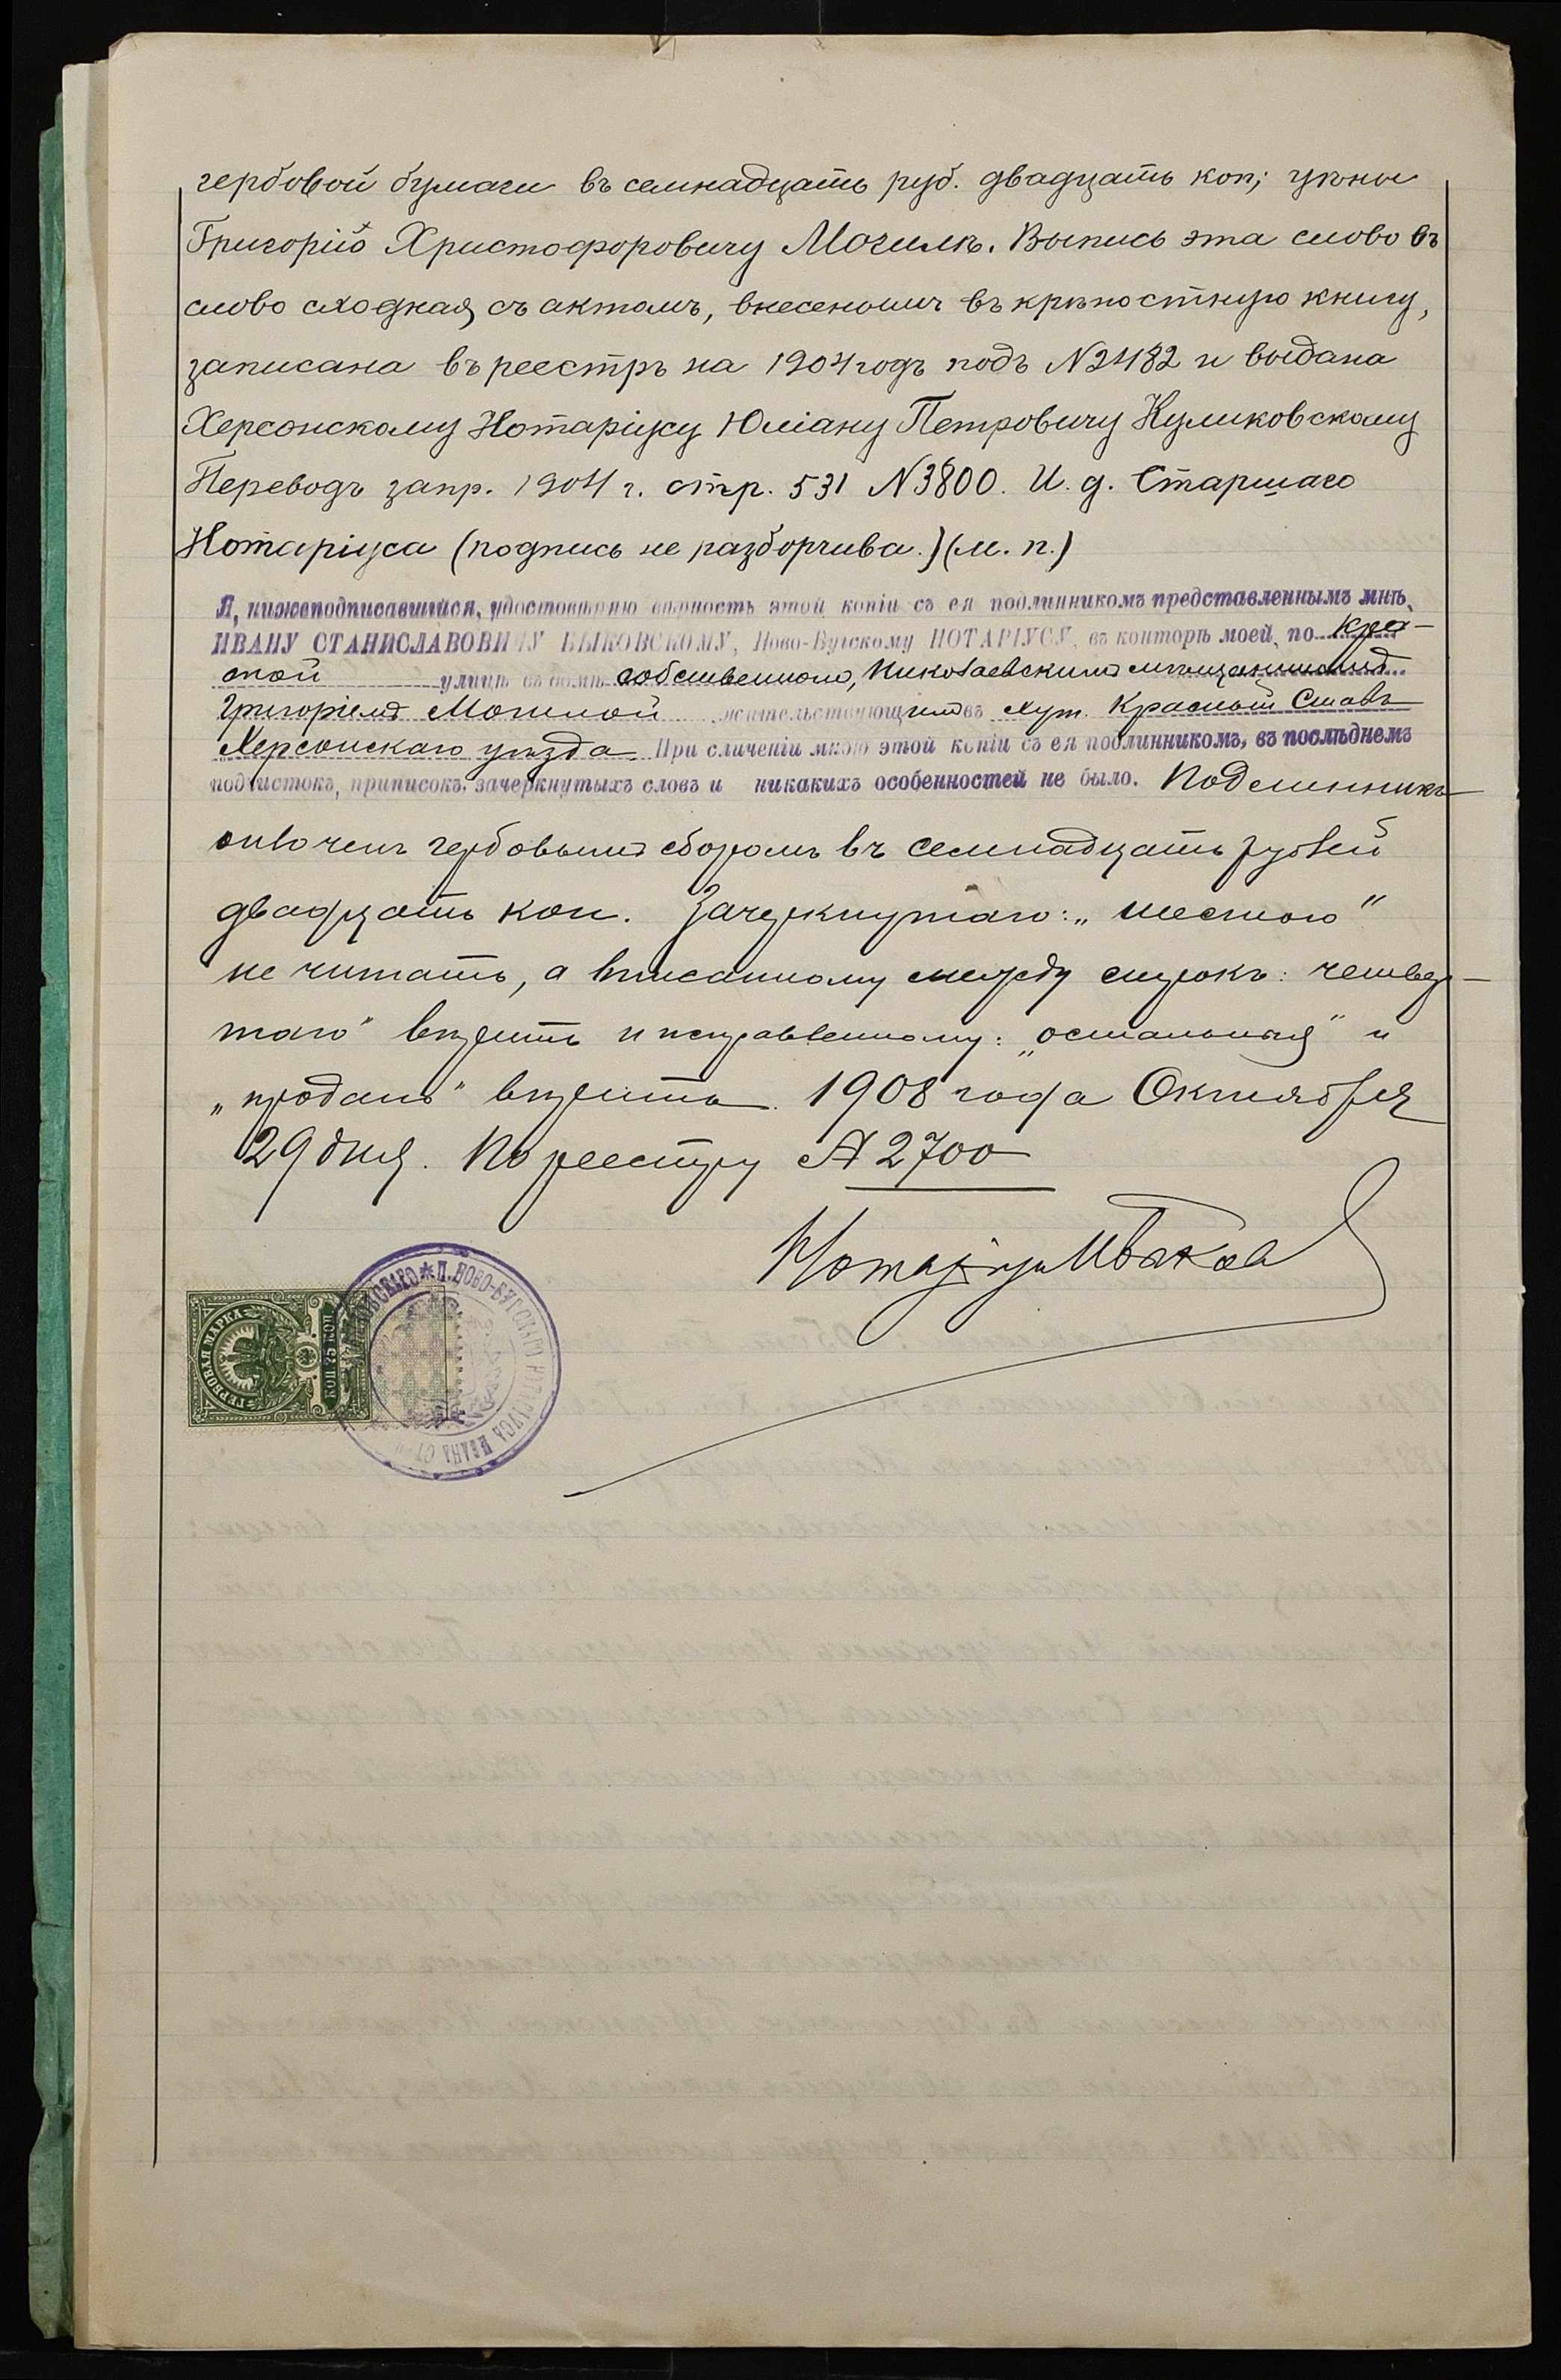 гербовой бумаги въ семнадцать руб. двадцать коп; цѣны
Григорію Христофоровичу Могилѣ. Выпись эта слово въ
слово сходная съ актомъ, внесеннымъ въ крѣпостную книгу,
записана въ реестръ на 1904 годъ подъ №2482 и выдана
Херсонскому Нотаріусу Юліану Петровичу Куликовскому
Переводъ запр. 1904 г. стр. 531 №3800. И. д. Старшаго
Нотаріуса (подпись не разборчива.) (м. п.)
Я, нижеподписавшійся, удостовѣряю вѣрность этой копіи съ ея подлинникомъ представленнымъ мнѣ,
ИВАНУ СТАНИСЛАВОВИЧУ БЫКОВСКОМУ, Ново-Бугскому НОТАРІУСУ, въ конторѣ моей, по
ской улицѣ въ домѣ собственномъ, Николаевскимъ мѣщаниномъ
Григоріемъ Могилой жительствующимъ въ хут. Красный Ставъ
Херсонскаго уѣзда. При сличеніи мною этой копіи съ ея подлинникомъ, въ послѣднемъ
подчистокъ, приписокъ, зачеркнутыхъ словъ и никакихъ особенностей не было. Подлинникъ
оплоченъ гербовымъ сборомъ въ семнадцать рублей
двадцать коп. Зачеркнутаго: „шестого"
не читать, а вписанному между строкъ: четвер-
таго" вѣрить и исправленному: „остальныя" и
„продать" вѣрить. 1908 года Октября
29 дня. По реестру № 2700
Нотаріусъ ИБыков
ГЕРБОВАЯ МАРКА
75 КОП.
БЫКОВСКАГО * П. НОВО-БУГСКАГО НОТАРІУСА ИВАНА СТ